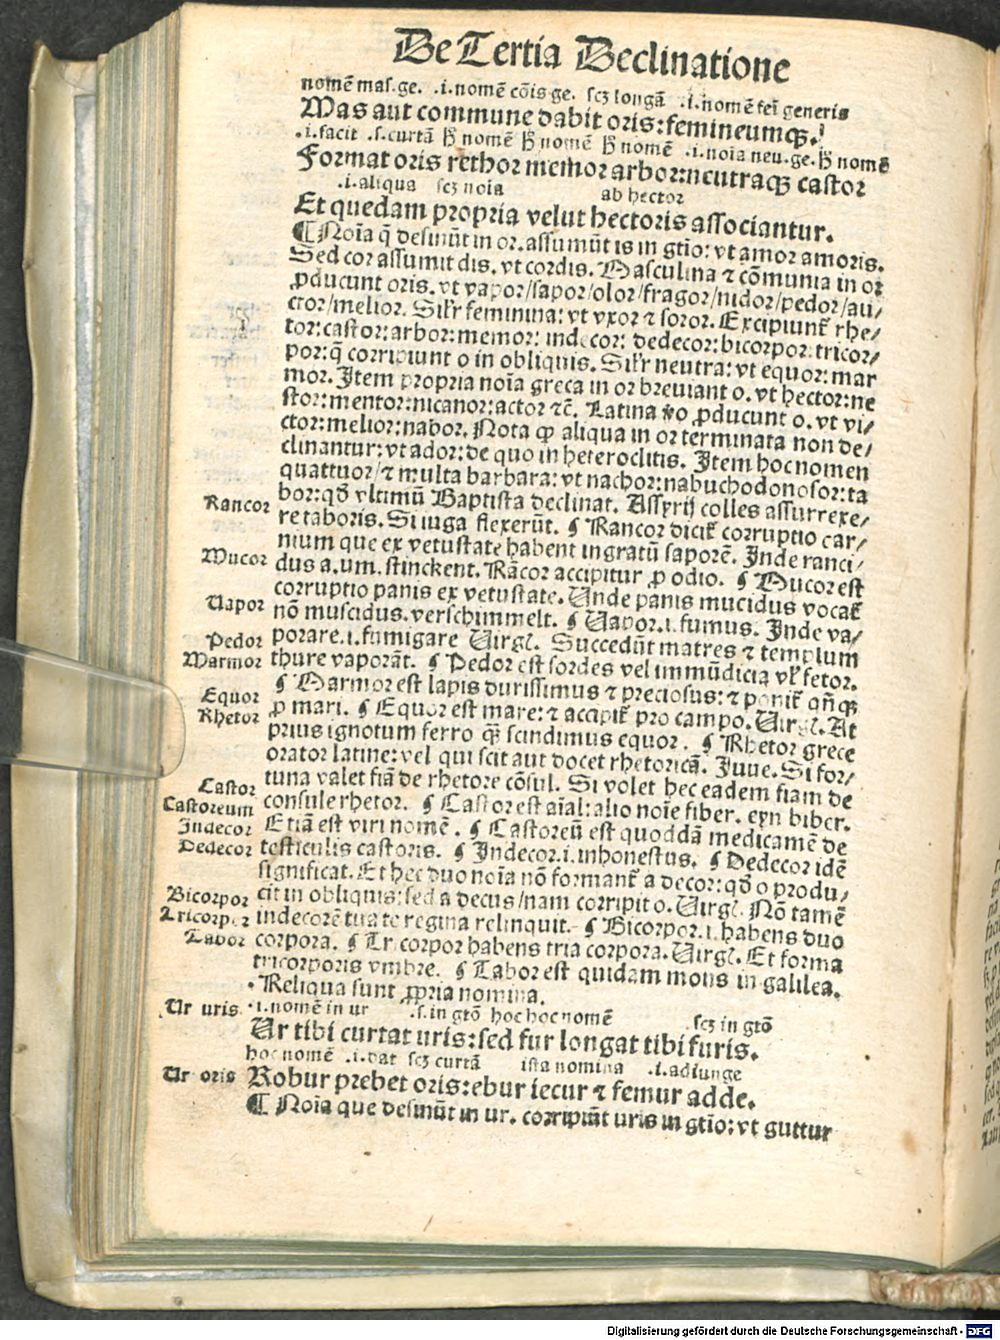 De Tertia Declinatione
nomē mas.ge. .i.nomē cōis ge. scꝫ longā .i.nomē fei generis
Mas aut commune dabit oris:femineumqꝫ.
.i.facit .s.curtā nomē nomē nomē .i.noīa neu.ge. nomē
Format oris rethor memor arbor:neutraqꝫ castor
.i.aliqua scꝫ noīa ab hector
Et quedam propria velut hectoris associantur.
¶ Noīa q̄ desinūt in or. assumūt is in gtīo: vt amor amoris.
Sed cor assumit dis. vt cordis. Masculina ⁊ cōmunia in or
ꝓducunt oris. vt vapor/sapor/olor/fragor/nidor/pedor/au/
ctor/melior. Sil'r feminina: vt vxor ⁊ soror. Excipiunt̄ rhe/
tor: castor: arbor: memor: indecor: dedecor: bicorpor: tricor/
por: q̄ corripiunt o in obliquis. Sil'r neutra: vt equor: mar
mor. Item propria noīa greca in or breuiant o. vt hector: ne
stor: mentor: nicanor: actor ⁊c̄. Latina v̄o ꝓducunt o. vt vi/
ctor: melior: nabor. Nota ꝙ aliqua in or terminata non de/
clinantur: vt ador: de quo in heteroclitis. Item hoc nomen
quattuor/⁊ multa barbara: vt nachor: nabuchodonosor: ta
bor: qd̄ vltimū Baptista declinat. Assyrij colles assurrexe/
Rancor re taboris. Si iuga flexerūt. ¶ Rancor dicit̄ corruptio car/
nium que ex vetustate habent ingratū saporē. Inde ranci/
Mucor dus a.um. stinckent. Rācor accipitur ꝓ odio. ¶ Mucor est
corruptio panis ex vetustate. Unde panis mucidus vocat̄
Uapor nō muscidus. verschimmelt. ¶ Uapor .i. fumus. Inde va/
Pedor porare .i. fumigare Uirgl. Succedūt matres ⁊ templum
Marmor thure vaporāt. ¶ Pedor est sordes vel immūdicia vl' fetor.
¶ Marmor est lapis durissimus ⁊ preciosus: ⁊ ponit̄ qn̄qꝫ
Equor ꝓ mari. ¶ Equor est mare: ⁊ accipit̄ pro campo. Uirgl. At
Rhetor prius ignotum ferro qꝫ scindimus equor. ¶ Rhetor grece
orator latine: vel qui scit aut docet rhetoricā. Juue. Si for/
tuna valet fiā de rhetore cōsul. Si volet hec eadem fiam de
Castor consule rhetor. ¶ Castor est aīal: alio noīe fiber. eyn biber.
Castoreum Etiā est viri nomē. ¶ Castoreū est quoddā medicamē de
Indecor testiculis castoris. ¶ Indecor .i. inhonestus. ¶ Dedecor idē
Dedecor significat. Et hec duo noīa nō formant̄ a decor: qd̄ o produ/
cit in obliquis: sed a decus/nam corripit o. Uirgl. Nō tamē
Bicorpor indecorē tua te regina relinquit. ¶ Bicorpor .i. habens duo
Tricorpor corpora. ¶ Tricorpor habens tria corpora. Uirgl. Et forma
Tabor tricorporis vmbre. ¶ Tabor est quidam mons in galilea.
Reliqua sunt ꝓpria nomina.
.i.nomē in ur .s.in gtō hoc hoc nomē scꝫ in gtō
Ur uris Ur tibi curtat uris: sed fur longat tibi furis.
hoc nomē .i.dat scꝫ curtā ista nomina .i.adiunge
Ur oris Robur prebet oris: ebur iecur ⁊ femur adde.
¶ Noīa que desinūt in ur. corripiūt uris in gtīo: vt guttur
Digitalisierung gefördert durch die Deutsche Forschungsgemeinschaft - DFG